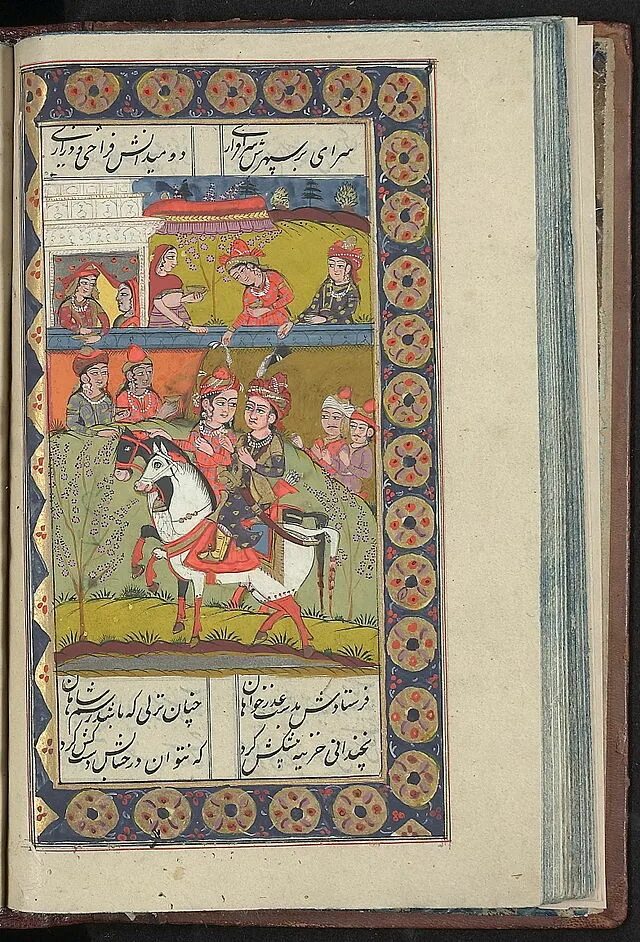 سرای بر سپهرش سرفرازی دو میدانش فراخی و درازی
فرستادش بدست عذرخواهان چنان نزلی که باشد رسم شاهان
نچندانی خزینه پیشکش کرد که نتوان در حسابش دستکش کرد